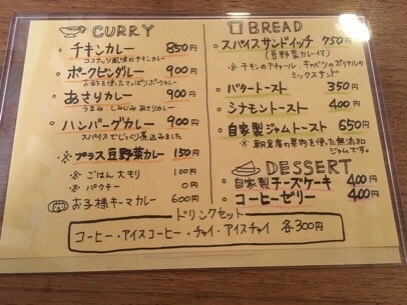 CURRY
チキンカレー 850円
ココナッツ風味のチキンカレー
ポークビンダルー 900円
あさりカレー 900円
うまみ しみじみ あさりカレー
ハンバーグカレー 900円
スパイスでじっくり煮込みました
※プラス豆野菜カレー 150円
※ ごはん大もり 100円
※ パクチー 0円
お子様キーマカレー 600円
BREAD
スパイスサンドイッチ 750円
(豆野菜カレー付)
※チキンのアチャール、キャベツのポリヤルの
ミックスサンド
バタートースト 350円
シナモントースト 400円
自家製ジャムトースト 650円
ジャムです。
DESSERT
自家製チーズケーキ 400円
コーヒーゼリー 400円
ドリンクセット
コーヒー・アイスコーヒー・チャイ・アイスチャイ 各300円